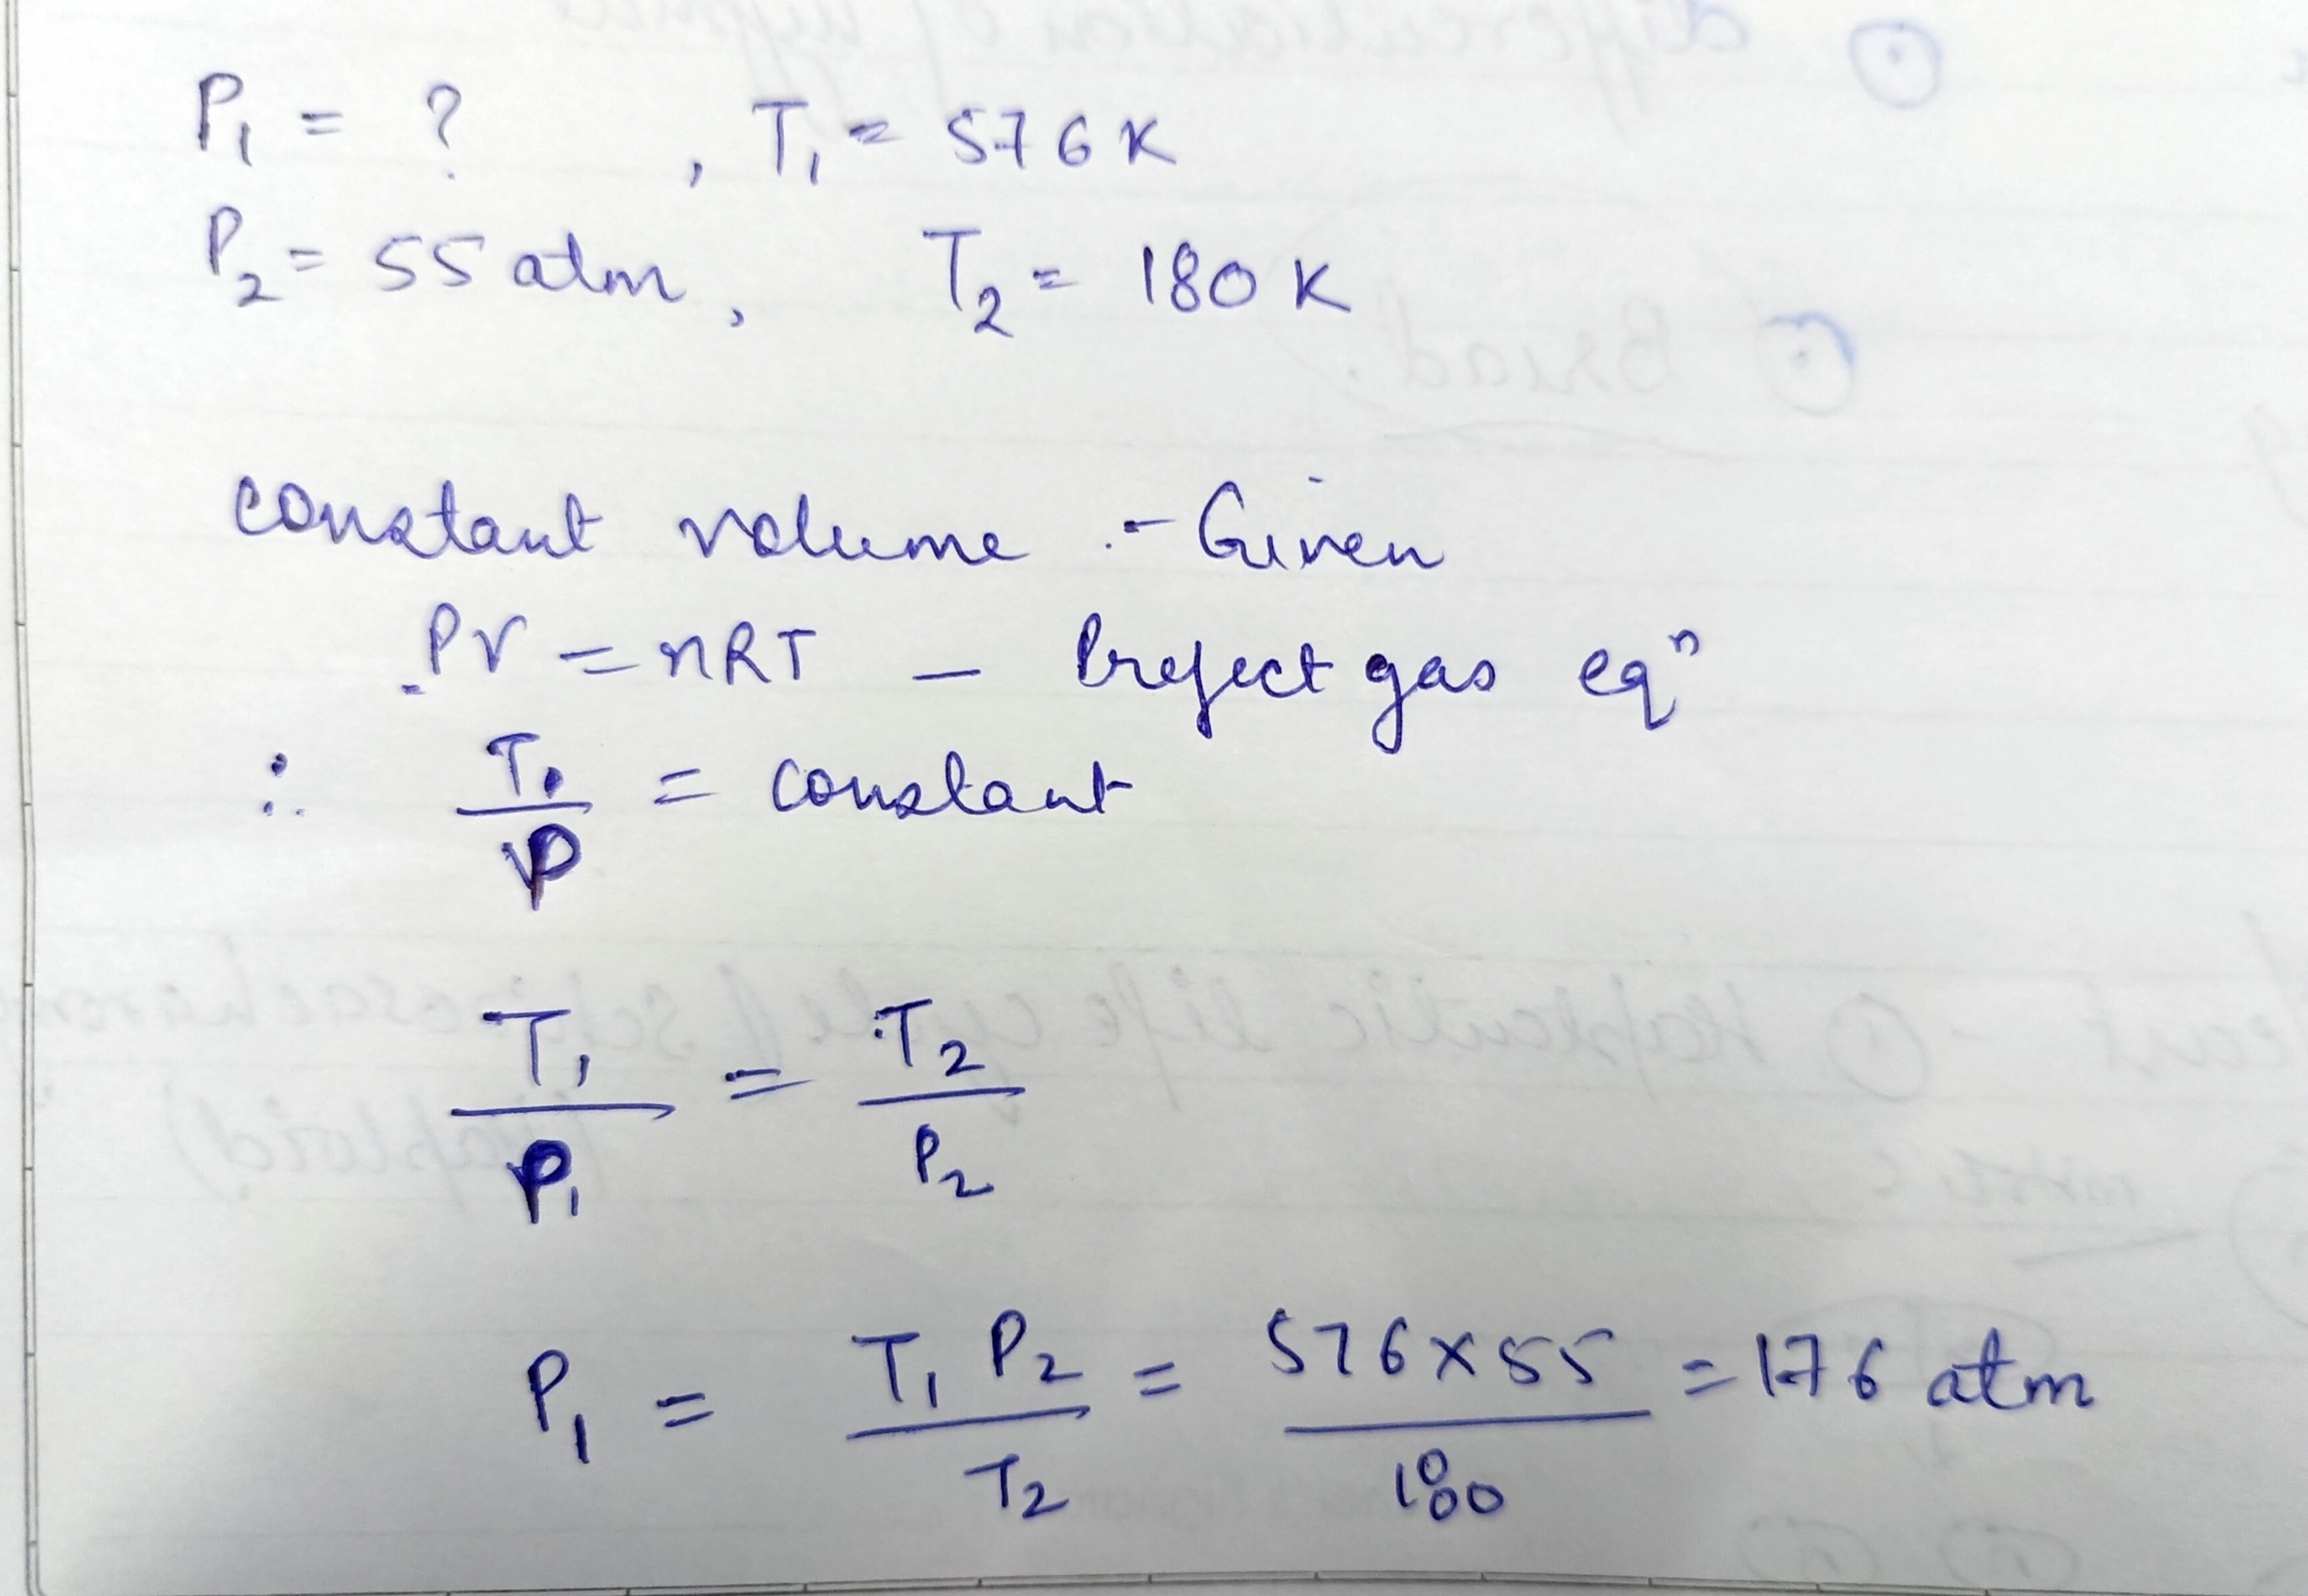 P₁ = ? , T₁ = 576 K
P₂ = 55 atm, T₂ = 180 K
constant volume :- Given
PV = nRT - Prefect gas eqⁿ
∴ T/P = constant
T₁/P₁ = T₂/P₂
P₁ = T₁ P₂/T₂ = 576 × 55/180 = 176 atm